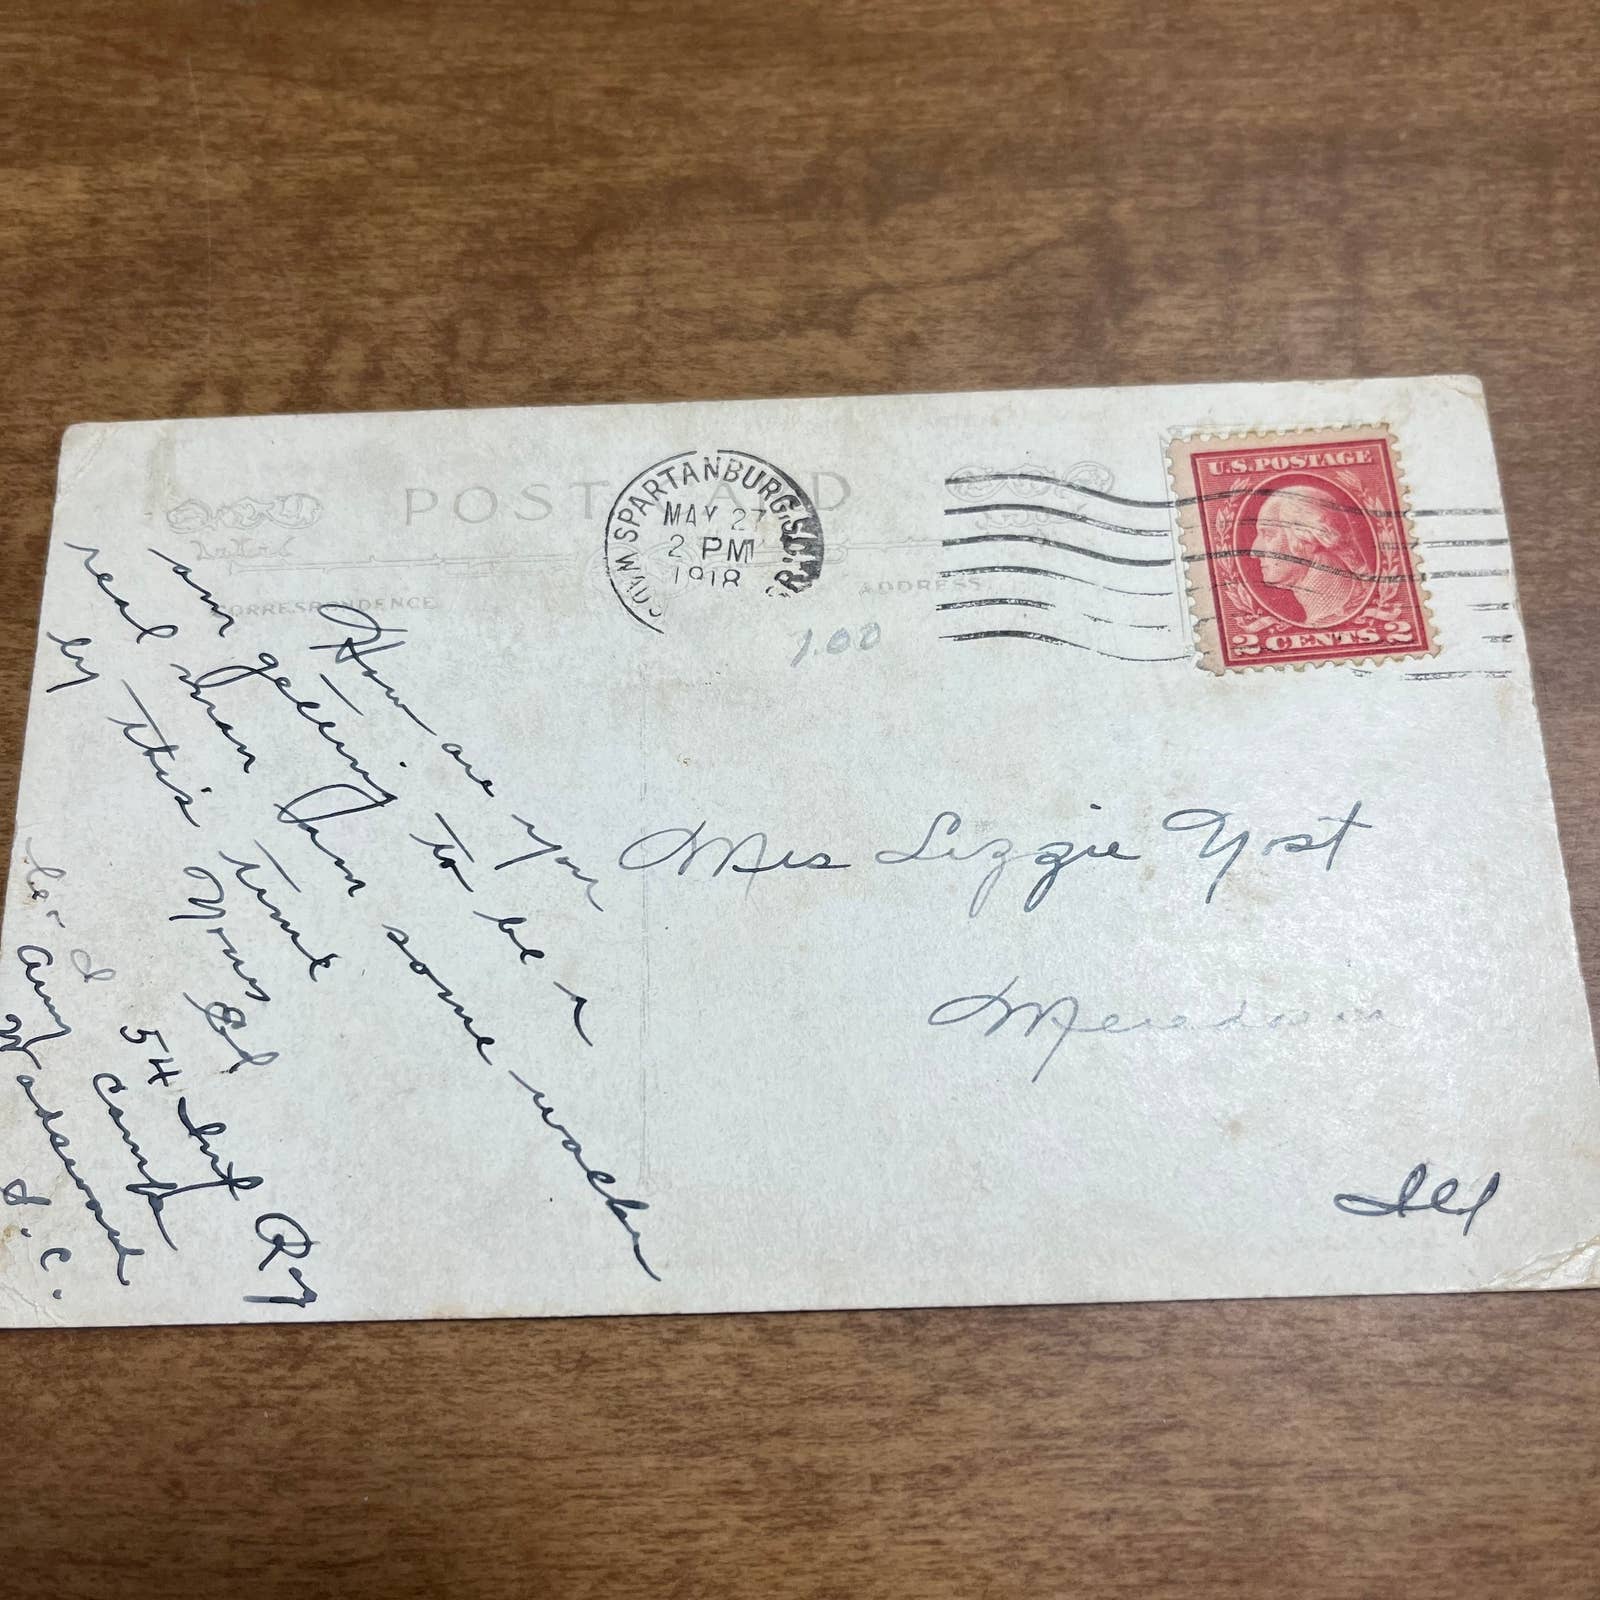 POST CARD
CORRESPONDENCE
ADDRESS
SPARTANBURG, S.C.
MAY 27
2 PM
1918
U.S. POSTAGE
2 CENTS 2
1.00
How are you
am getting to be a
real man I am some
by this time
Yours Ed
Co. I 54 Inf Reg
Army Camp
Wadsworth
S.C.
Mrs Lizzie Yost
Ill